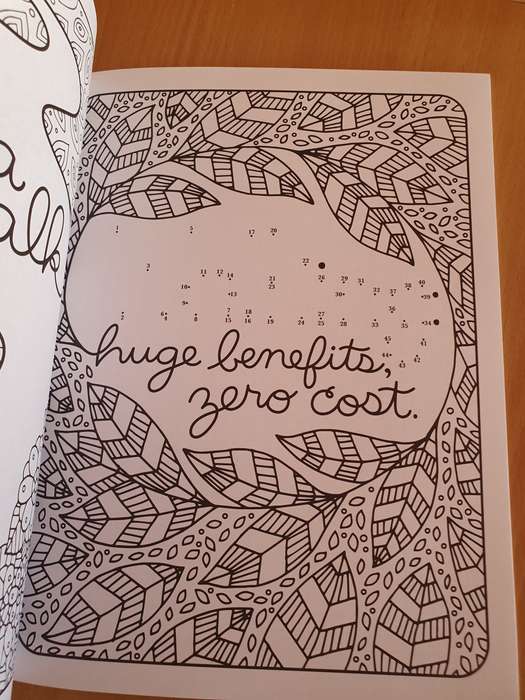 a
alk
1 5 17 20
3 11 12 14 21 22 26 29 31 38 40
10 13 23 30 32 37 39
9 36
2 6 4 8 7 15 18 16 19 24 27 25 28 33 35 34
huge benefits,
zero cost.
45 44 43 42 41